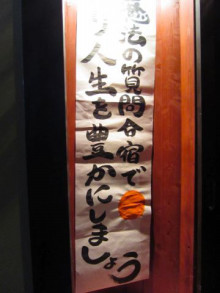 魔法の質問合宿で
人生を豊かにしましょう